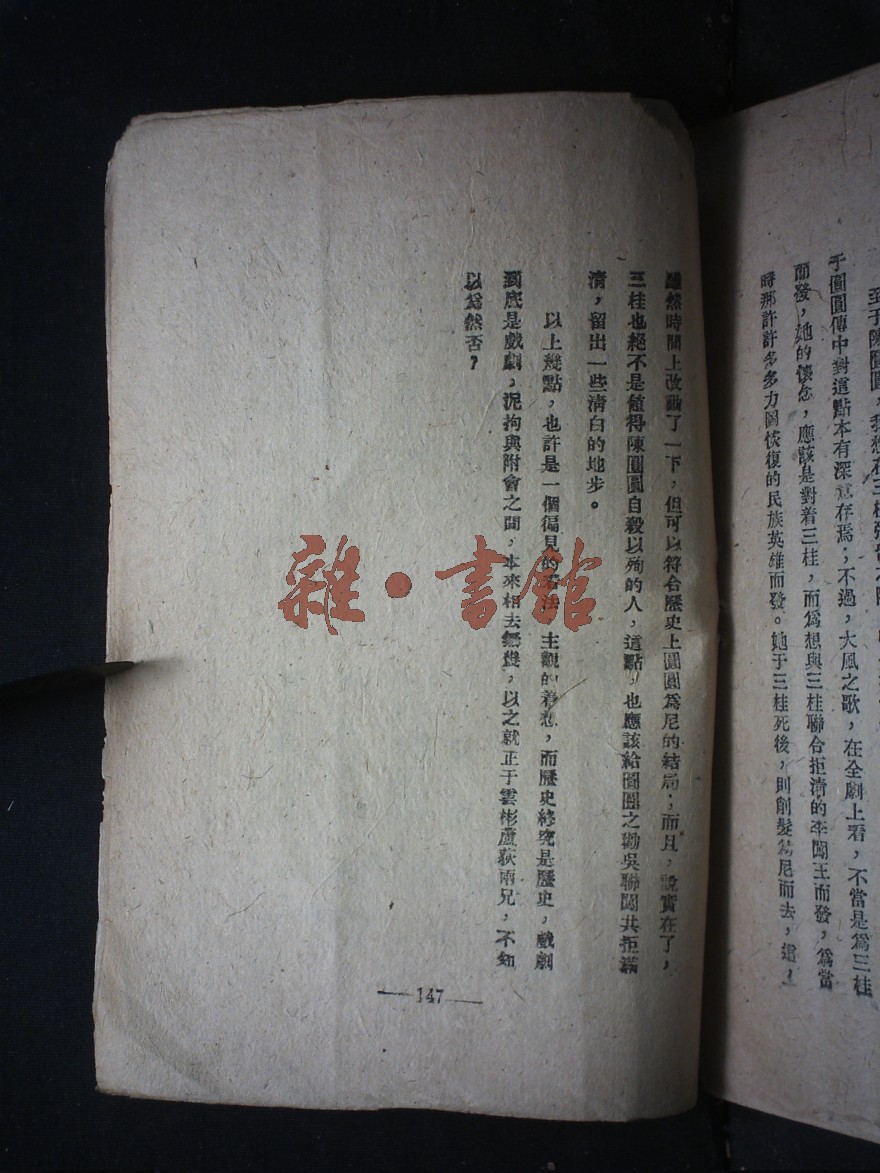 至于陳圓圓，我想在三桂
于圓圓傳中對這點本有深意存焉；不過，大風之歌，在全劇上看，不當是爲三桂
而發，她的懷念，應該是對着三桂，而爲想與三桂聯合拒清的李闖王而發，爲當
時那許許多多力圖恢復的民族英雄而發。她于三桂死後，則削髮爲尼而去，這，
雖然時間上改動了一下，但可以符合歷史上圓圓爲尼的結局；而且，說實在了，
三桂也絕不是値得陳圓圓自殺以殉的人，這點，也應該給圓圓之勸吳聯闖共拒滿
清，留出一些清白的地步。
以上幾點，也許是一個徧見的看法，主觀的着想，而歷史終究是歷史，戲劇
到底是戲劇，泥拘與附會之間，本來相去懸殊，以之就正于雲彬蘆荻兩兄，不知
以爲然否？
147
雜·書館